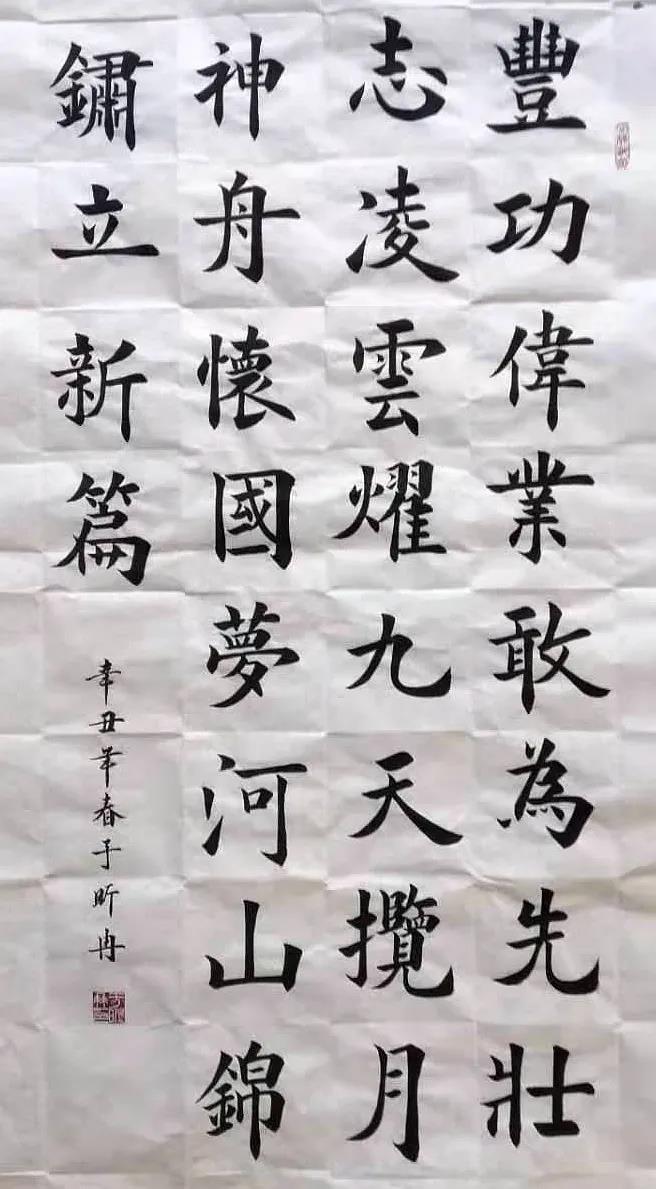 豐功偉業敢為先壯
志凌雲耀九天攬月
神舟懷國夢河山錦
鏽立新篇
辛丑年春于昕冉